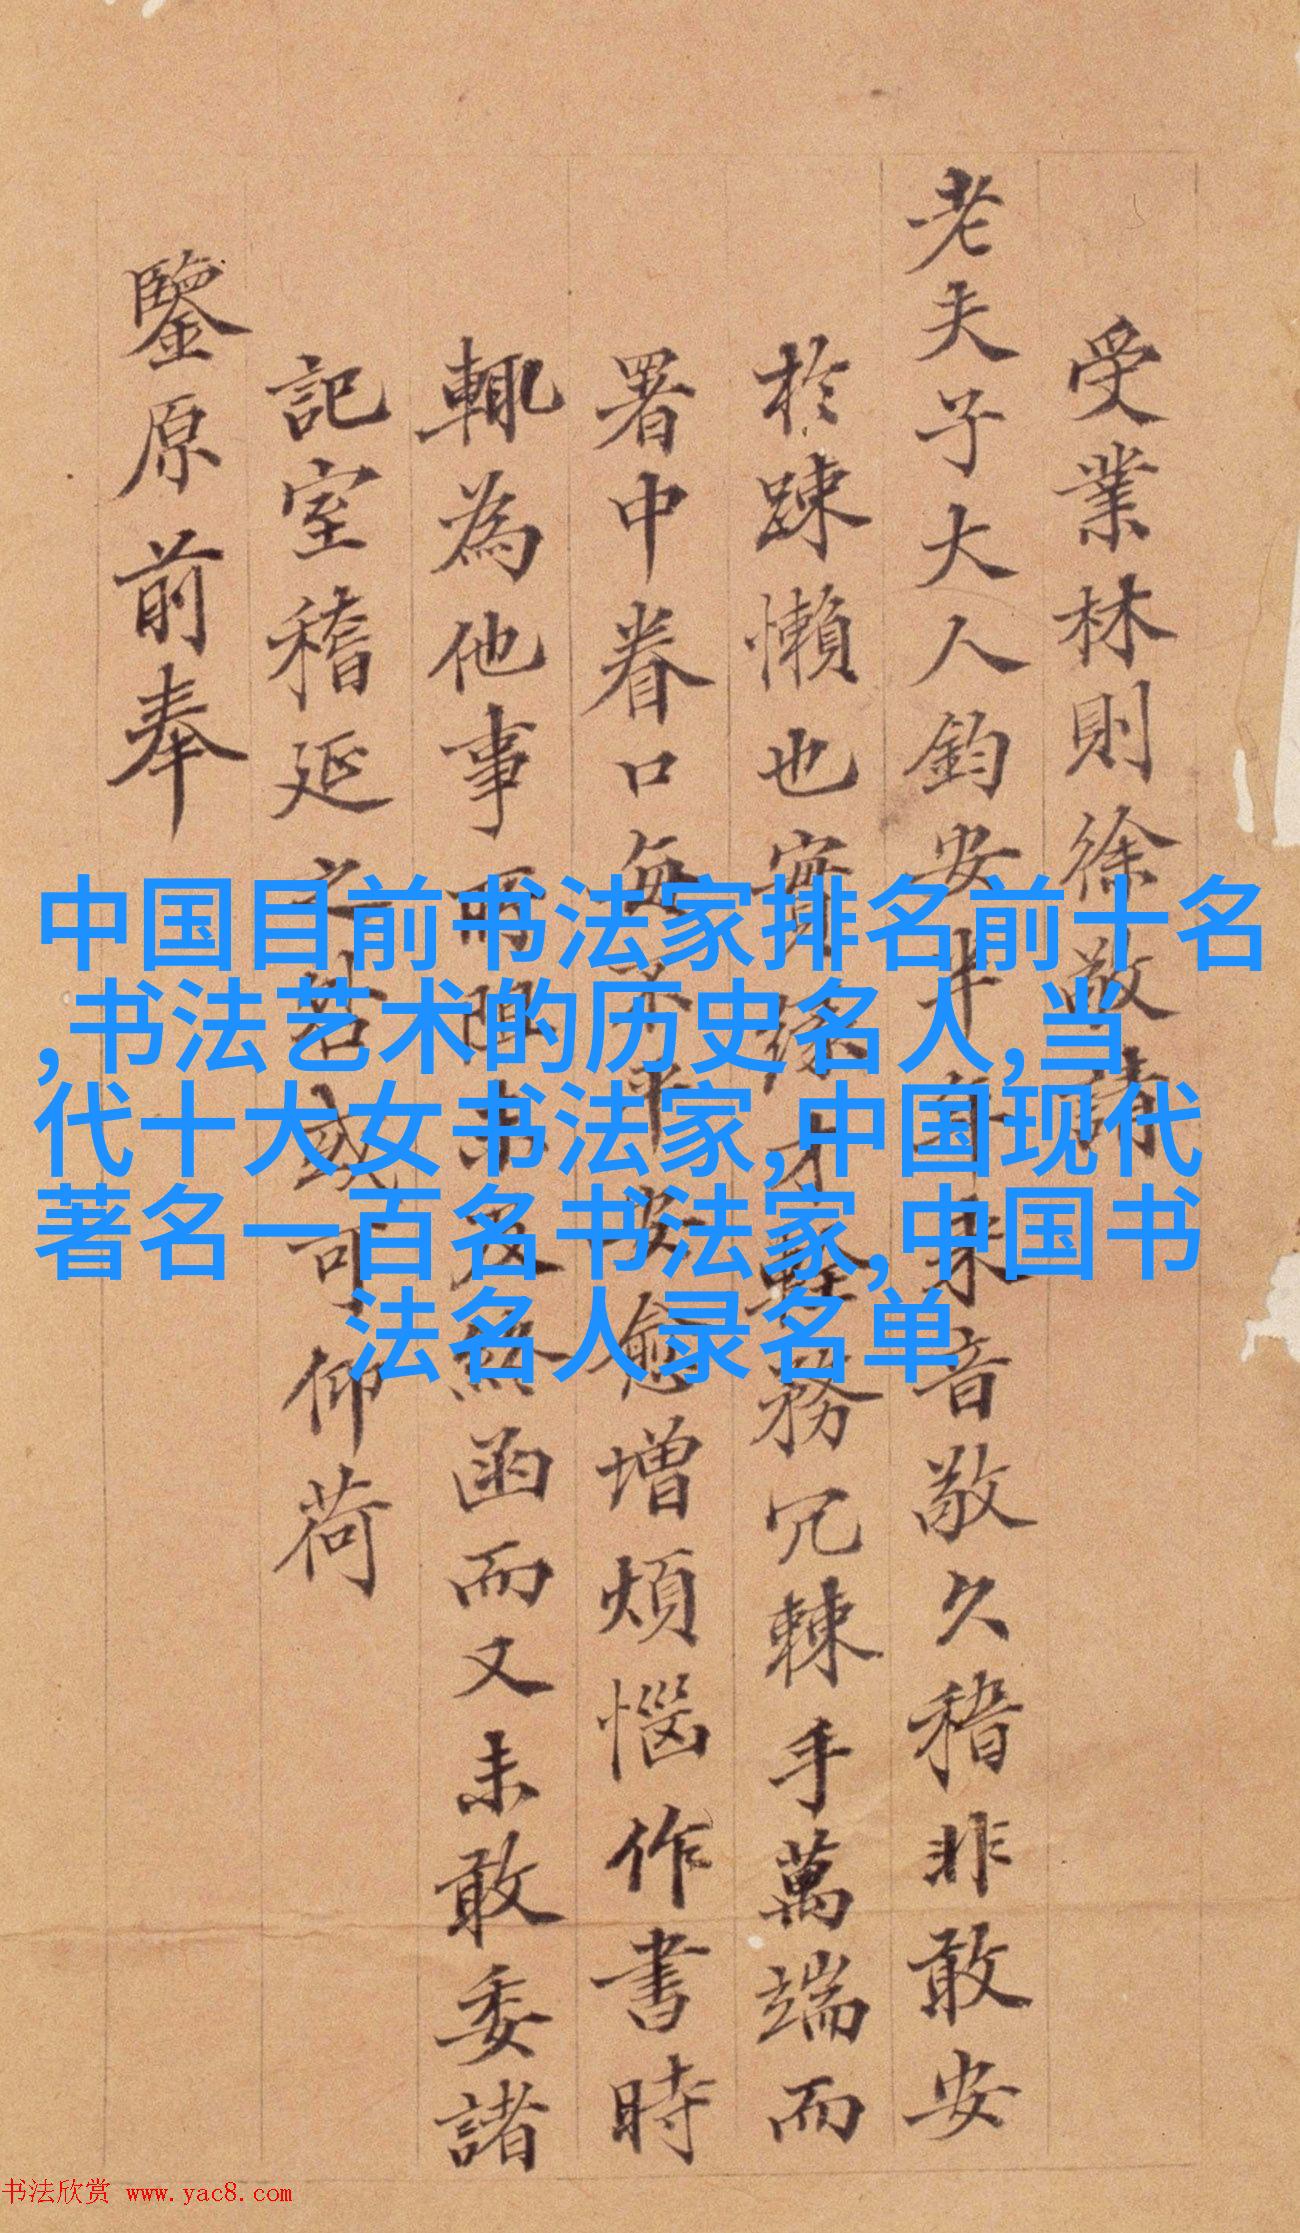 受業林則徐敬請
老夫子大人鈞安半年未音敬久稽非敢安
於踈懶也實緣才輇務冗棘手萬端而
署中眷口每不平安愈增煩惱作書時
輒為他事所阻未及終函而又未敢委諸
記室稽延之咎或可仰荷
鑒原前奉
中国目前书法家排名前十名
,书法艺术的历史名人,当
代十大女书法家,中国现代
著名一百名书法家,中国书
法名人录名单
书法欣赏 www.yac8.com